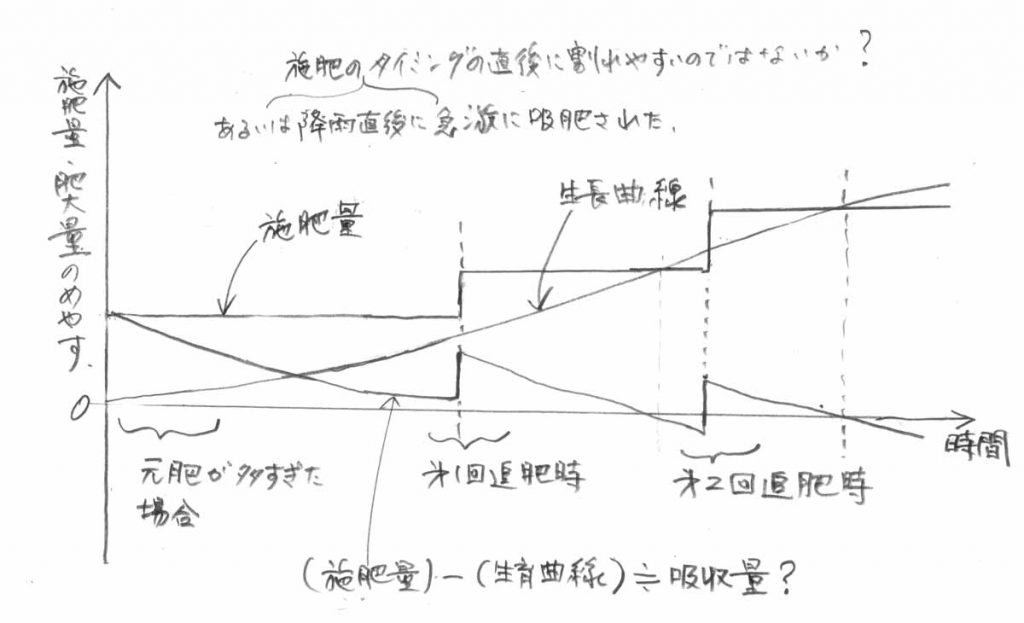 施肥のタイミングの直後に割れやすいのではないか?
あるいは降雨直後に急激に吸肥された.
施肥量・肥大量のめやす.
施肥量
生長曲線
0
時間
元肥が多すぎた
場合
才1回追肥時
才2回追肥時
(施肥量)-(生育曲線)≒吸収量?